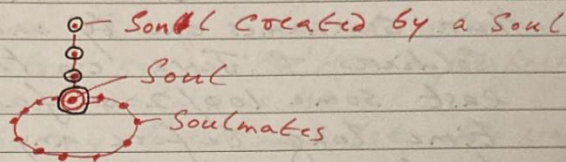 Soul created by a soul
Soul
Soulmates